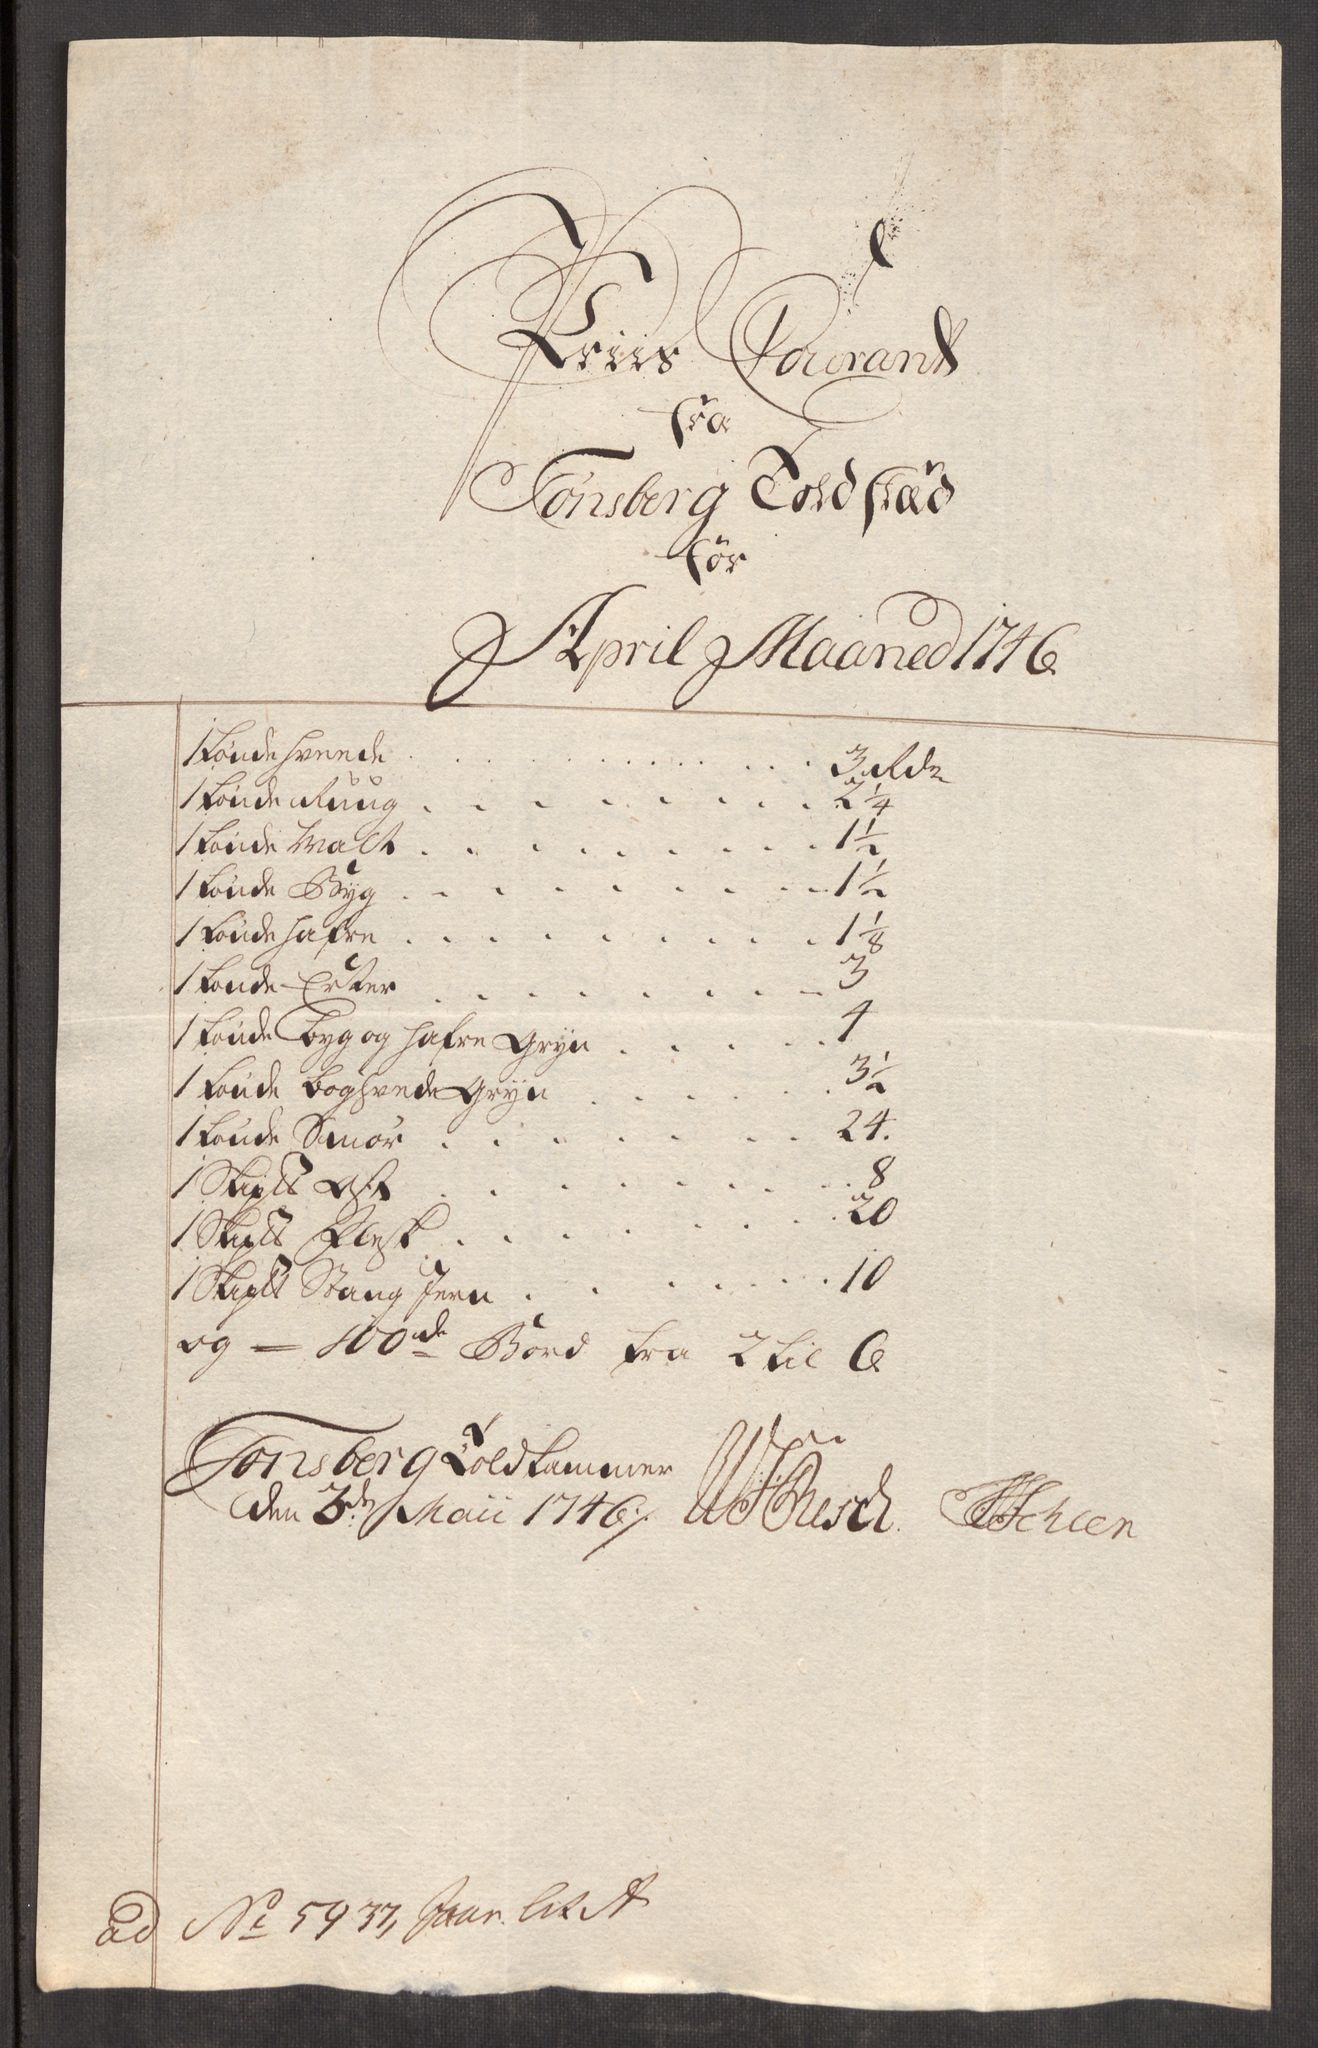 Priis Courant
fra
Tønsberg Toldstæd
før
April Maaned 1746
1 tønde hveede . . . . . . . . . 3 Rdr
1 tønde Ruug . . . . . . . . . 2 1/4
1 tønde Malt . . . . . . . . . 1 1/2
1 tønde Byg . . . . . . . . . 1 1/2
1 tønde hafre . . . . . . . . . 1 1/8
1 tønde Erter . . . . . . . . . 3
1 tønde byg og hafre Gryn . . . . . 4
1 tønde boghvede Gryn . . . . . . 3 1/2
1 tønde Smør . . . . . . . 24.
1 Skip℔ Ost . . . . . . . . 8
1 Skip℔ Flesk . . . . . . . . 20
1 Skip℔ Stang Jern . . . . . . 10
og — 100de Bord fra 2 til 6
Tonsberg Toldkammer
den 3de Maii 1746
Resch
ad No 5937, Jaar. Lit A